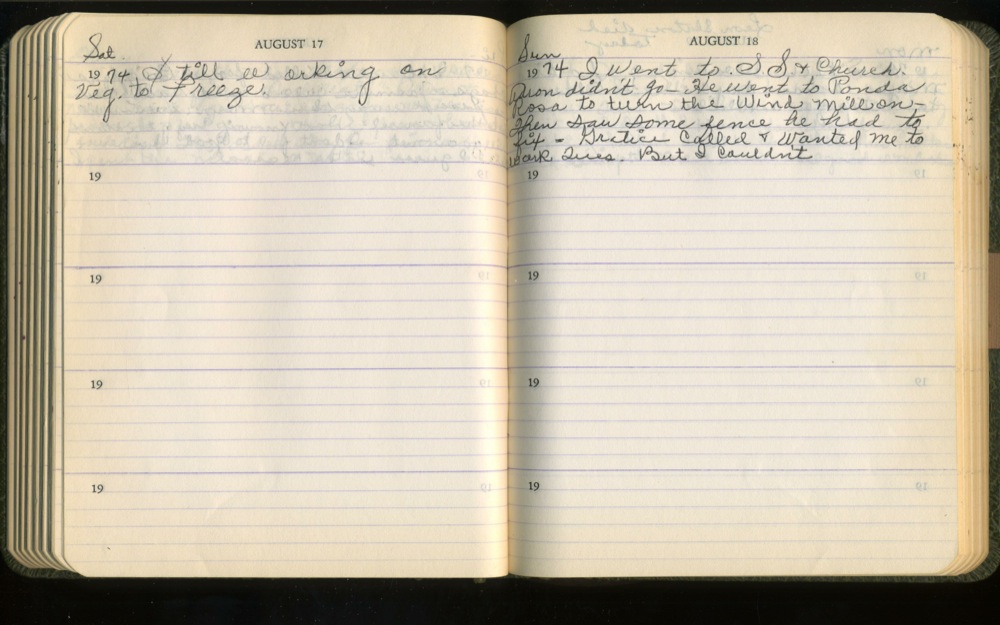 AUGUST 17
Sat.
1974 Still working on
Veg. to Freeze.
19
19
19
19
AUGUST 18
Sun
1974 I Went to S S & Church.
didn't go - He went to Ponda
Rosa to turn the Wind Mill on -
then saw some fence he had to
fix - Called & Wanted me to
Work Tues. But I Couldn't
19
19
19
19